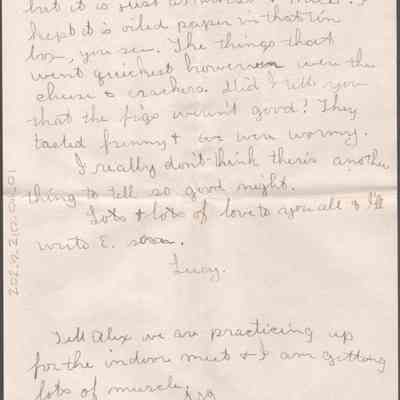 but it is just as moist & nice. I
kept it is oiled paper in that tin
box, you see. The things that
went quickest however were the
cheese & crackers. Did I tell you
that the figs weren't good? They
tasted funny & were wormy.
I really don't think there's another
thing to tell so good night.
Lots & lots of love to you all & I'll
write E. soon.
Lucy.
Tell Alex we are practicing up
for the indoor meet & I am getting
lots of muscle.